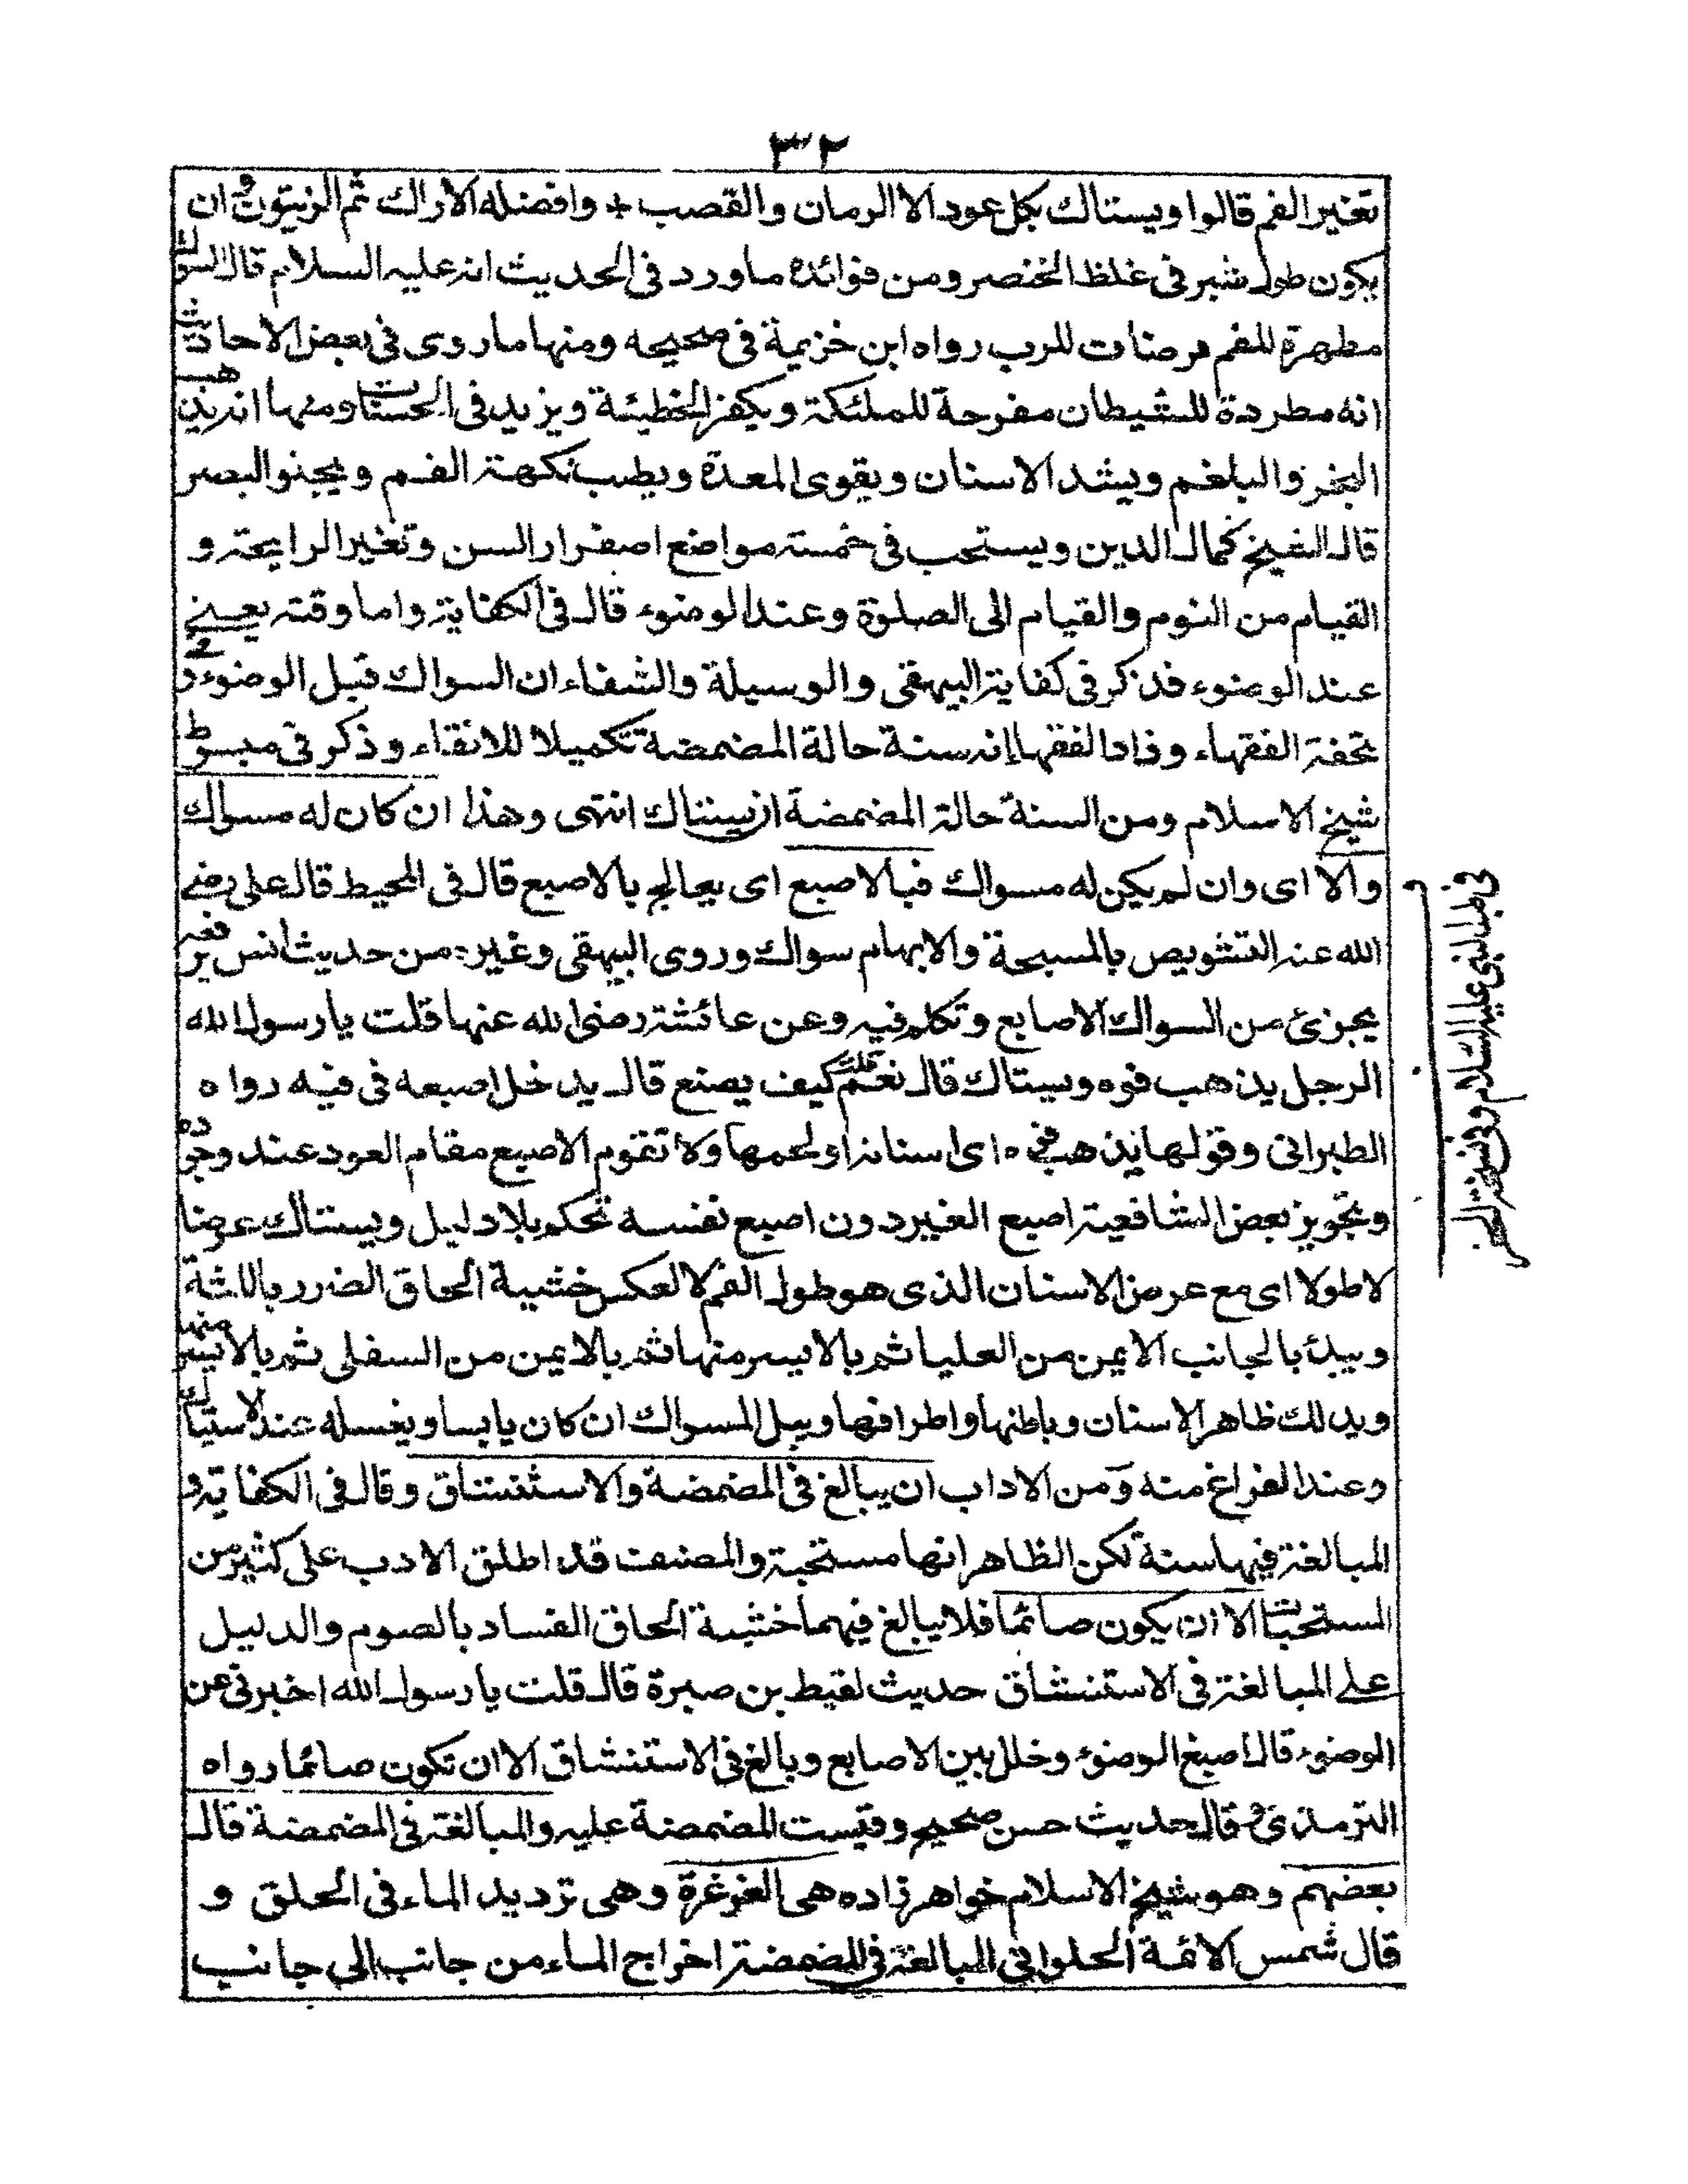 ٣٢
تغير الفم قالوا ويستاك بكل عود الا الرمان والقصب + وافضله الاراك ثم الزيتون و ان
يكون طول شبر فى غلظ الخنصر ومن فوائده ما ورد فى الحديث انه عليه السلام قال السواك
مطهرة للفم مرضات للرب رواه ابن خزيمة فى صحيحه ومنها ما روى فى بعض الاحاديث
انه مطردة للشيطان مفرحة للملئكة ويكفر الخطيئة ويزيد فى الحسنات ومنها انه يذهب
البخر والبلغم ويشد الاسنان ويقوى المعدة ويطيب نكهة الفم ويجلو البصر
قال الشيخ كمال الدين ويستحب فى خمسة مواضع اصفرار السن وتغير الرايحة و
القيام من النوم والقيام الى الصلوة وعند الوضوء قال فى الكفاية واما وقته يعنى
عند الوضوء فذكر فى كفاية البيهقى والوسيلة والشفاء ان السواك قبل الوضوء وفى
تحفة الفقهاء وزاد الفقها انه سنة حالة المضمضة تكميلا للانقاء وذكر فى مبسوط
شيخ الاسلام ومن السنة حالة المضمضة ان يستاك انتهى وهذا ان كان له مسواك
والا اى وان لم يكن له مسواك فبالاصبع اى يعالج بالاصبع قال فى المحيط قال على رضى
الله عنه التشويص بالمسبحة والابهام سواك وروى البيهقى وغيره من حديث انس يرفعه
يجزئ من السواك الاصابع وتكلم فيه وعن عائشة رضى الله عنها قلت يا رسول الله
الرجل يذهب فوه ويستاك قال نعم قلت كيف يصنع قال يدخل اصبعه فى فيه رواه
الطبرانى وقولها يذهب فوه اى اسنانه او لحمها ولا تقوم الاصبع مقام العود عند وجوده
وتجويز بعض الشافعية اصبع الغير دون اصبع نفسه تحكم بلا دليل ويستاك عرضا
لا طولا اى مع عرض الاسنان الذى هو طول الفم لا لعكس خشية الحاق الضرر باللثة
ويبدئ بالجانب الايمن من العليا ثم بالايسر منها ثم بالايمن من السفلى ثم بالايسر منها
ويدلك ظاهر الاسنان وباطنها واطرافها ويبل المسواك ان كان يابسا ويغسله عند الاستياك
وعند الفراغ منه ومن الاداب ان يبالغ فى المضمضة والاستنشاق وقال فى الكفاية و
المبالغة فيها سنة لكن الظاهر انها مستحبة والمصنف قد اطلق الادب على كثير من
المستحبات الا ان يكون صائما فلا يبالغ فيهما خشية الحاق الفساد بالصوم والدليل
على المبالغة فى الاستنشاق حديث لقيط بن صبرة قال قلت يا رسول الله اخبرنى عن
الوضوء قال اصبغ الوضوء وخلل بين الاصابع وبالغ فى الاستنشاق الا ان تكون صائما رواه
الترمذى وقال حديث حسن صحيح وقيست المضمضة عليه والمبالغة فى المضمضة قال
بعضهم وهو شيخ الاسلام خواهر زاده هى الغرغرة وهى ترديد الماء فى الحلق و
قال شمس الائمة الحلوانى المبالغة فى المضمضة اخراج الماء من جانب الى جانب